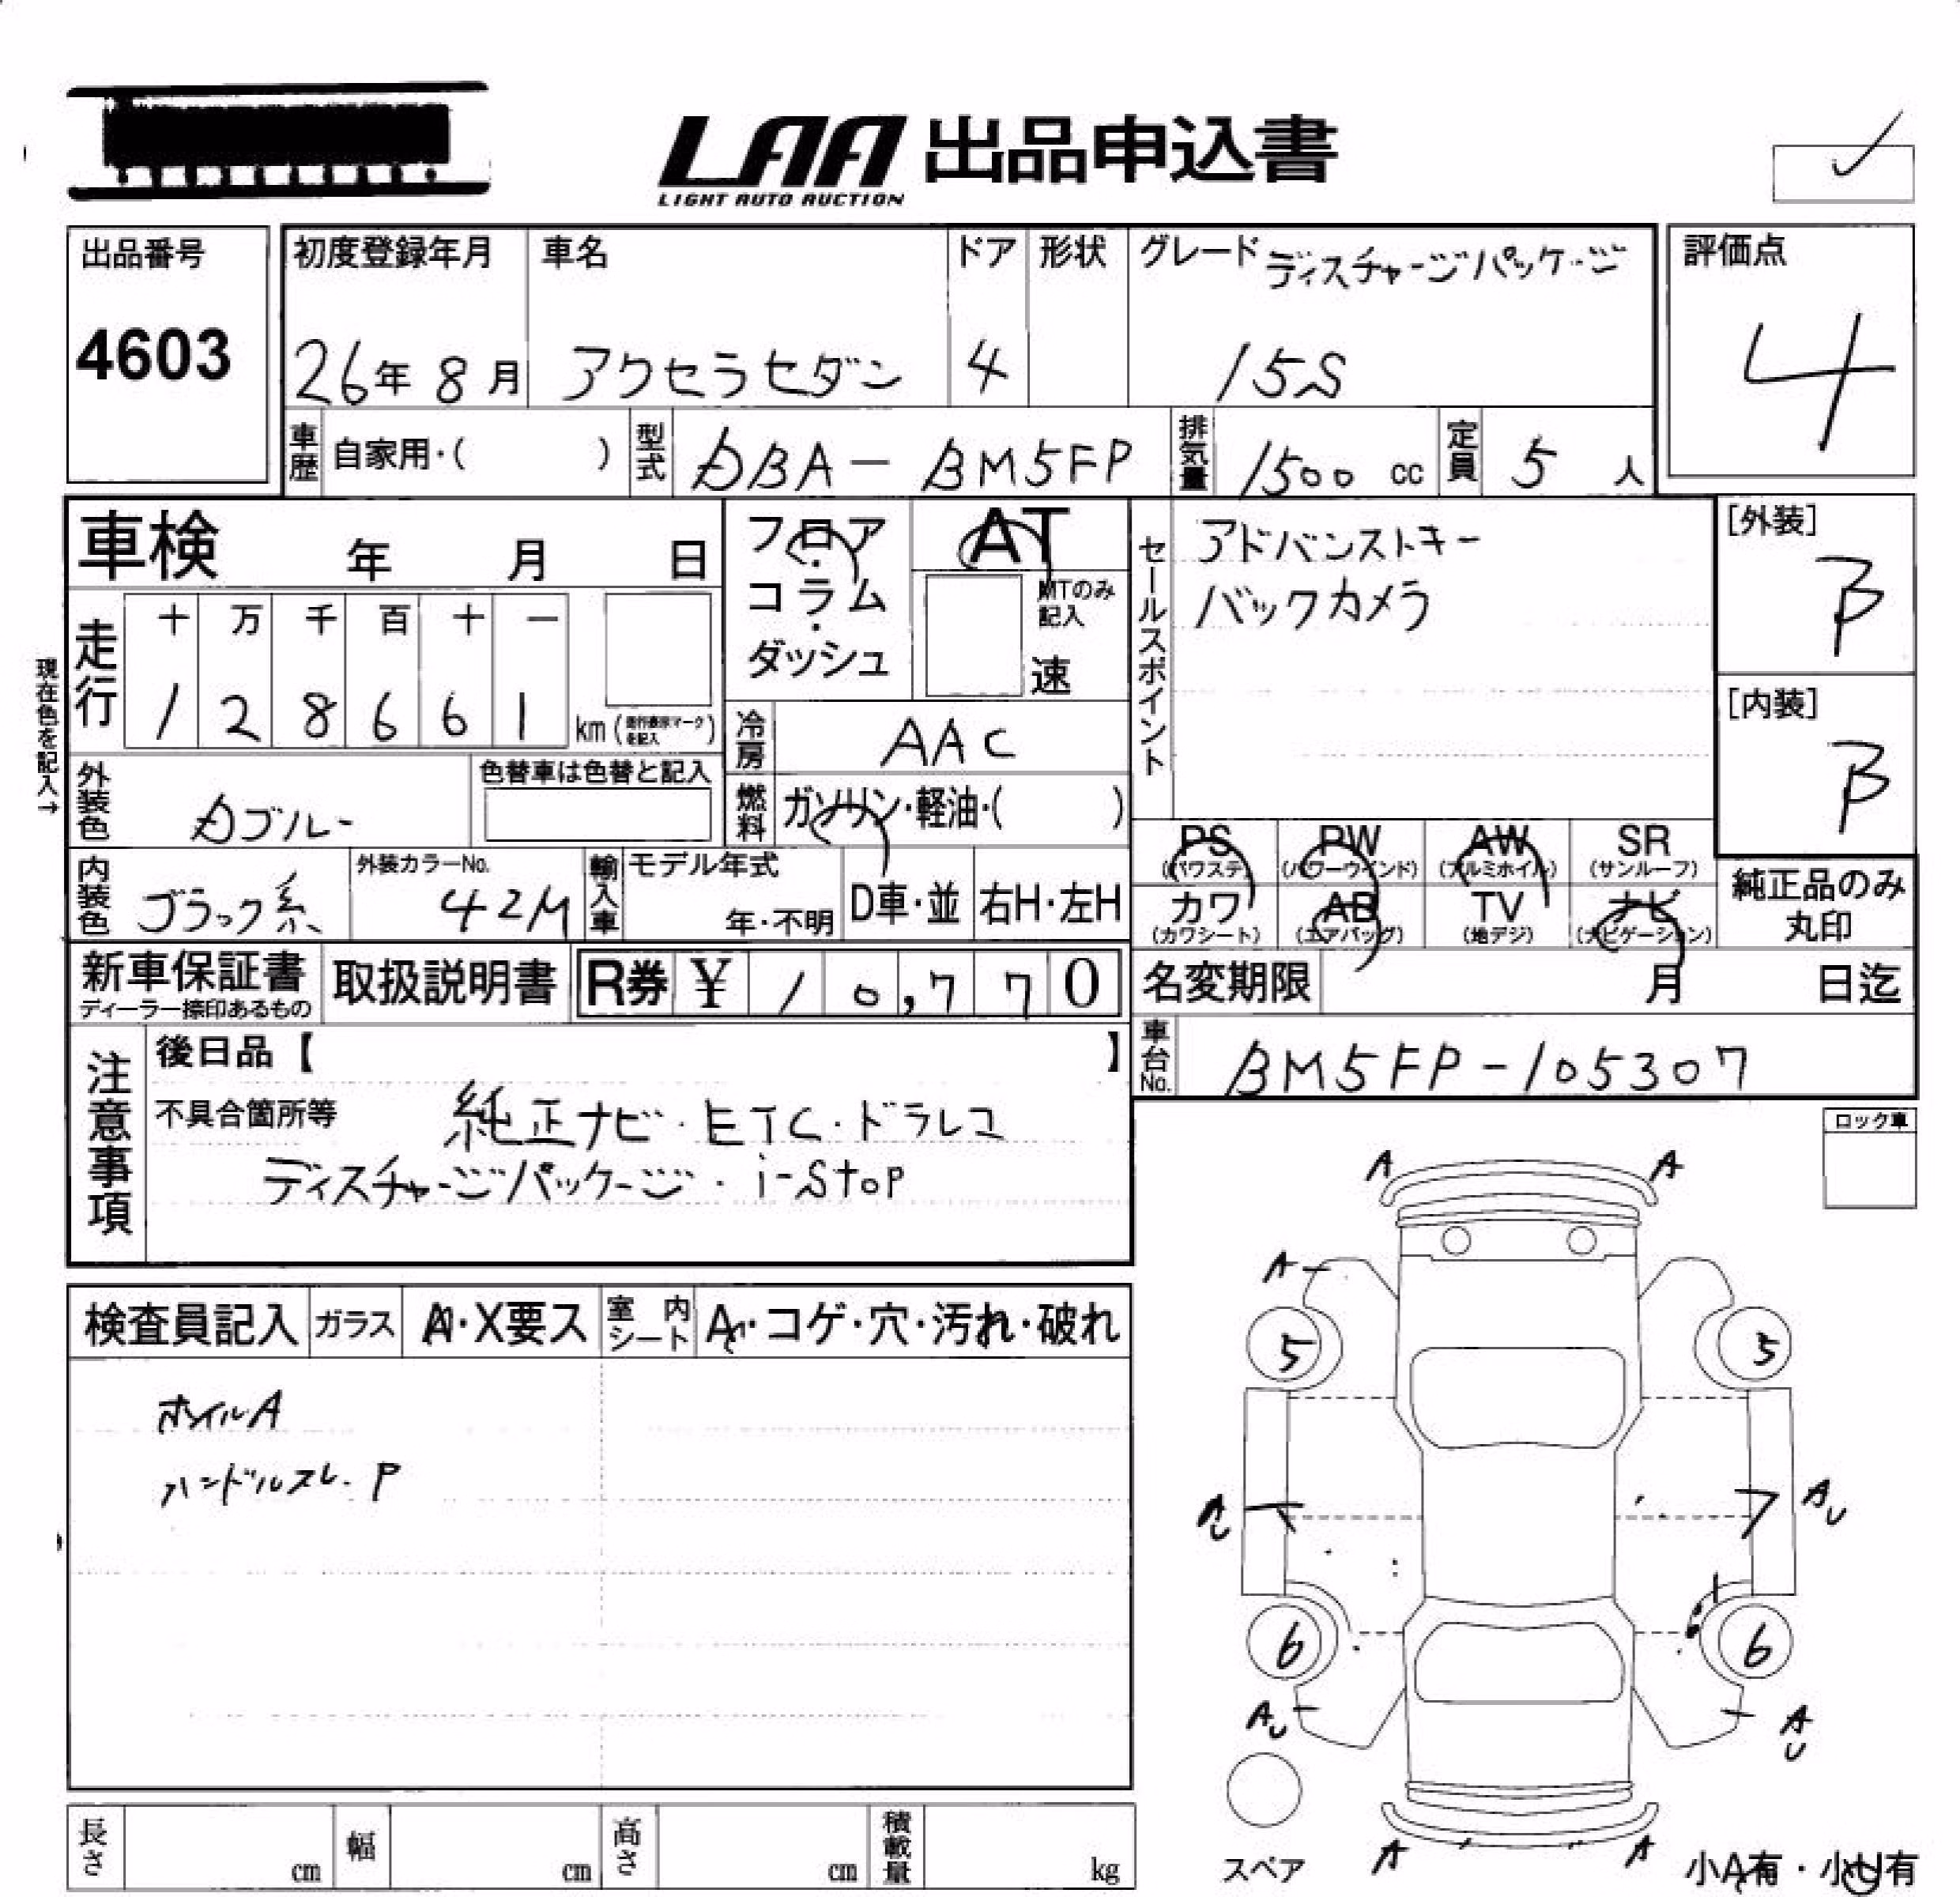 LAA 出品申込書
LIGHT AUTO AUCTION
出品番号
4603
初度登録年月
26年 8月
車名
アクセラセダン
ドア
4
形状
グレード ディスチャージパッケージ
15S
評価点
4
車歴 自家用・( )
型式 DBA-BM5FP
排気量 1500 cc
定員 5 人
車検 年 月 日
フロア・コラム・ダッシュ
AT
MTのみ記入
速
セールスポイント
アドバンストキー
バックカメラ
[外装]
B
[内装]
B
現在色を記入→
走行
十 万 千 百 十 一
1 2 8 6 6 1 km (走行表示マークを記入)
冷房 AAC
外装色
色替車は色替と記入
燃料 ガソリン・軽油・( )
PS (パワステ)
PW (パワーウインド)
AW (アルミホイル)
SR (サンルーフ)
カワ (カワシート)
AB (エアバッグ)
TV (地デジ)
ナビ (ナビゲーション)
純正品のみ丸印
内装色 ブラック系
外装カラーNo. 42M
輸入車
モデル年式
年・不明
D車・並
右H・左H
新車保証書
ディーラー捺印あるもの
取扱説明書
R券 ¥ 10,770
名変期限 月 日迄
車台No. BM5FP-105307
注意事項
後日品【 】
不具合箇所等 純正ナビ・ETC・ドラレコ
ディスチャージパッケージ・i-Stop
ロック車
検査員記入
ガラス A・X要ス
室内シート A・コゲ・穴・汚れ・破れ
ホイルA
ハンドルスレ・P
A A
A
5 5
AU AU
6 6
AU AU
A A
スペア
小A有・小U有
長さ cm
幅 cm
高さ cm
積載量 kg